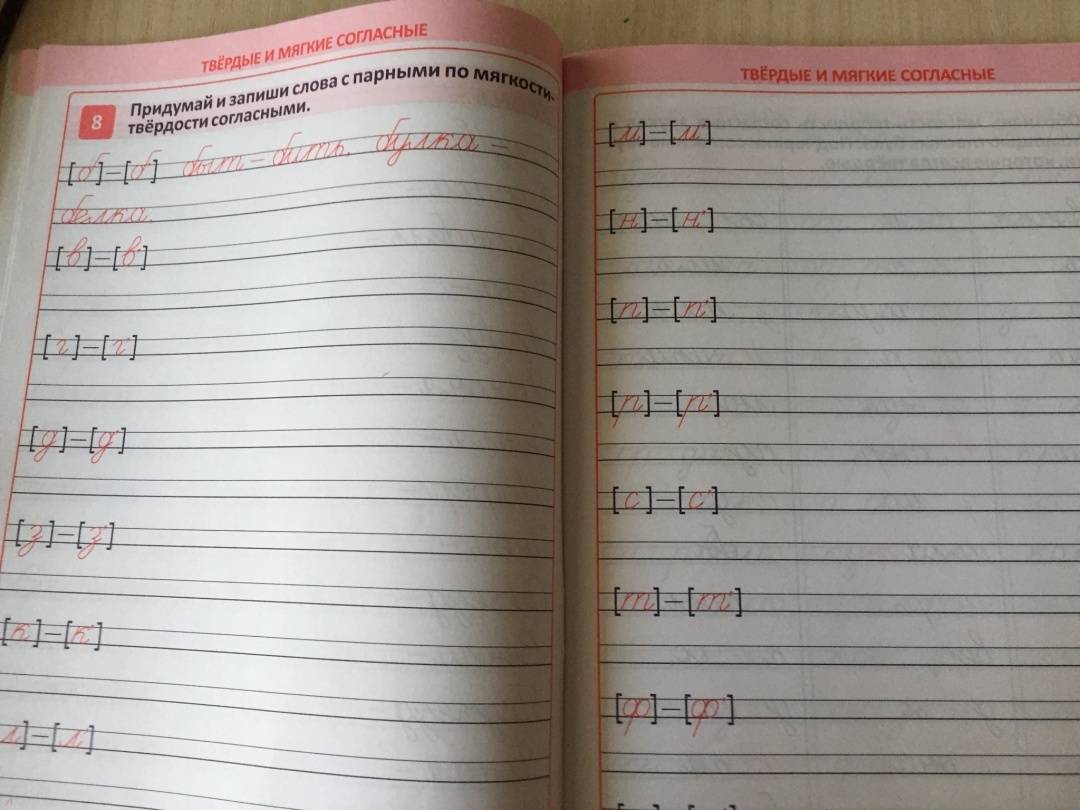 ТВЁРДЫЕ И МЯГКИЕ СОГЛАСНЫЕ
8 Придумай и запиши слова с парными по мягкости-
твёрдости согласными.
[б]–[б'] быт – бить. булка –
белка.
[в]–[в']
[г]–[г']
[д]–[д']
[з]–[з']
[к]–[к']
[л]–[л']
ТВЁРДЫЕ И МЯГКИЕ СОГЛАСНЫЕ
[м]–[м']
[н]–[н']
[п]–[п']
[р]–[р']
[с]–[с']
[т]–[т']
[ф]–[ф']